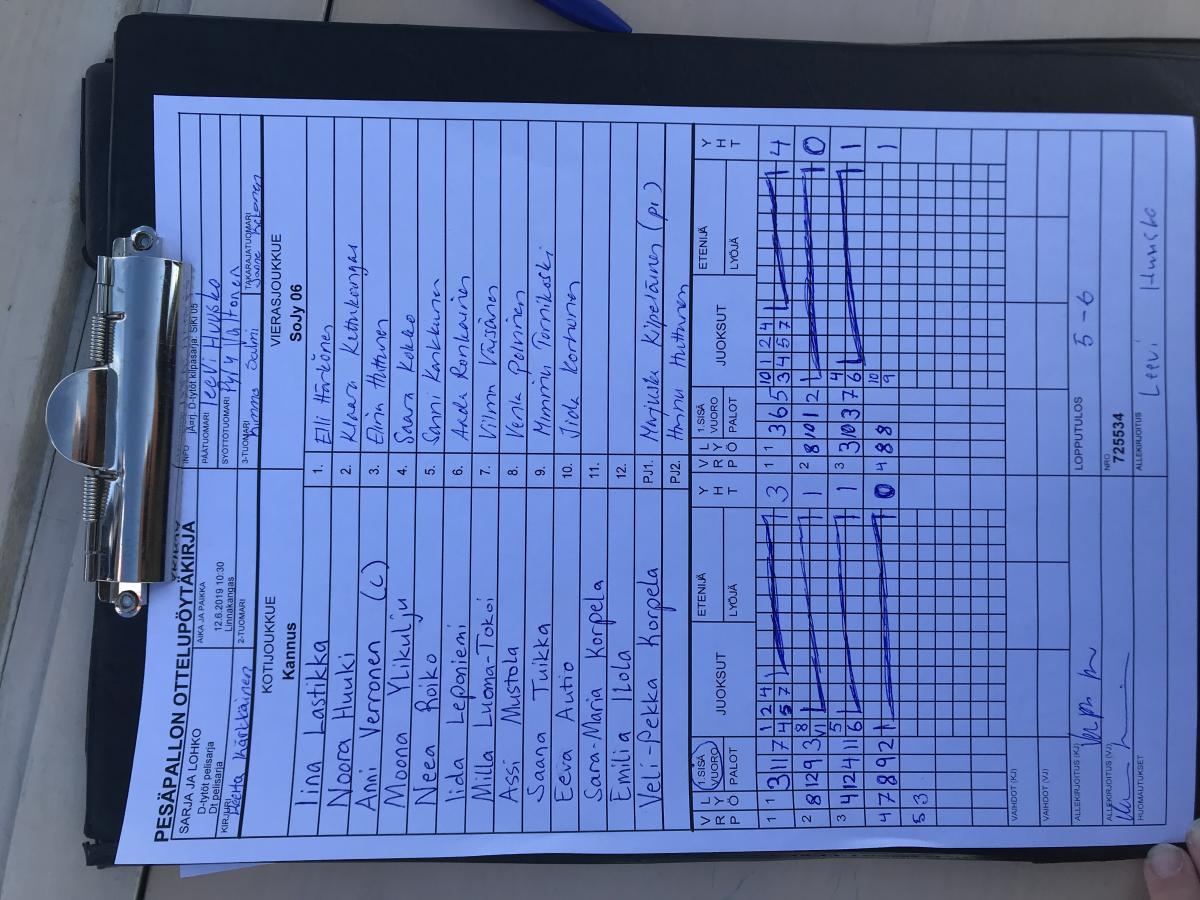 PESÄPALLON OTTELUPÖYTÄKIRJA
SARJA JA LOHKO
D-tytöt pelisarja
Dt pelisarja
AIKA JA PAIKKA
12.6.2019 10:30
Linnakangas
INFO
D-tytöt kilpasarja
PÄÄTUOMARI
Leevi Huusko
SYÖTTÖTUOMARI
KIRJURI
Kärkkäinen
2-TUOMARI
3-TUOMARI
Kimmo Salmi
TAKARAJATUOMARI
KOTIJOUKKUE
Kannus
VIERASJOUKKUE
SoJy 06
Iina Lastikka 1. Elli Härkönen
Noora Huuki 2. Kiara Kettukangas
Anni Verronen (C) 3. Elina Huttunen
Moona Ylikulju 4. Saara Kokko
Neea Roiko 5. Sanni Karkkunen
Iida Leponiemi 6. Aada Ronkainen
Milla Luoma-Tokoi 7. Vilma Väisänen
Assi Mustola 8. Venla Polvinen
Saana Tuikka 9. Mimmu Tornikoski
Eeva Autio 10. Iida Kortunen
Sara-Maria Korpela 11.
Emilia Ilola 12.
Veli-Pekka Korpela PJ1. Marjuska Kilpeläinen (PJ)
PJ2. Hannu Huttunen
V R P L Y Ö 1.SISÄ VUORO PALOT JUOKSUT ETENIJÄ LYÖJÄ Y H T V R P L Y Ö 1.SISÄ VUORO PALOT JUOKSUT ETENIJÄ LYÖJÄ Y H T
1 1 3 11 7 1 2 4 4 5 7 3 1 1 3 6 5 10 1 2 4 3 4 5 7 4
2 8 12 9 3 1 2 8 10 1 2 0
3 4 12 4 11 5 6 1 3 3 10 3 7 4 6 1
4 7 8 9 2 0 4 4 8 8 10 9 1
5 3
VAIHDOT (KJ)
VAIHDOT (VJ)
ALLEKIRJOITUS (KJ)
LOPPUTULOS
5-6
ALLEKIRJOITUS (VJ)
NRO
725534
HUOMAUTUKSET
ALLEKIRJOITUS
Leevi Huusko